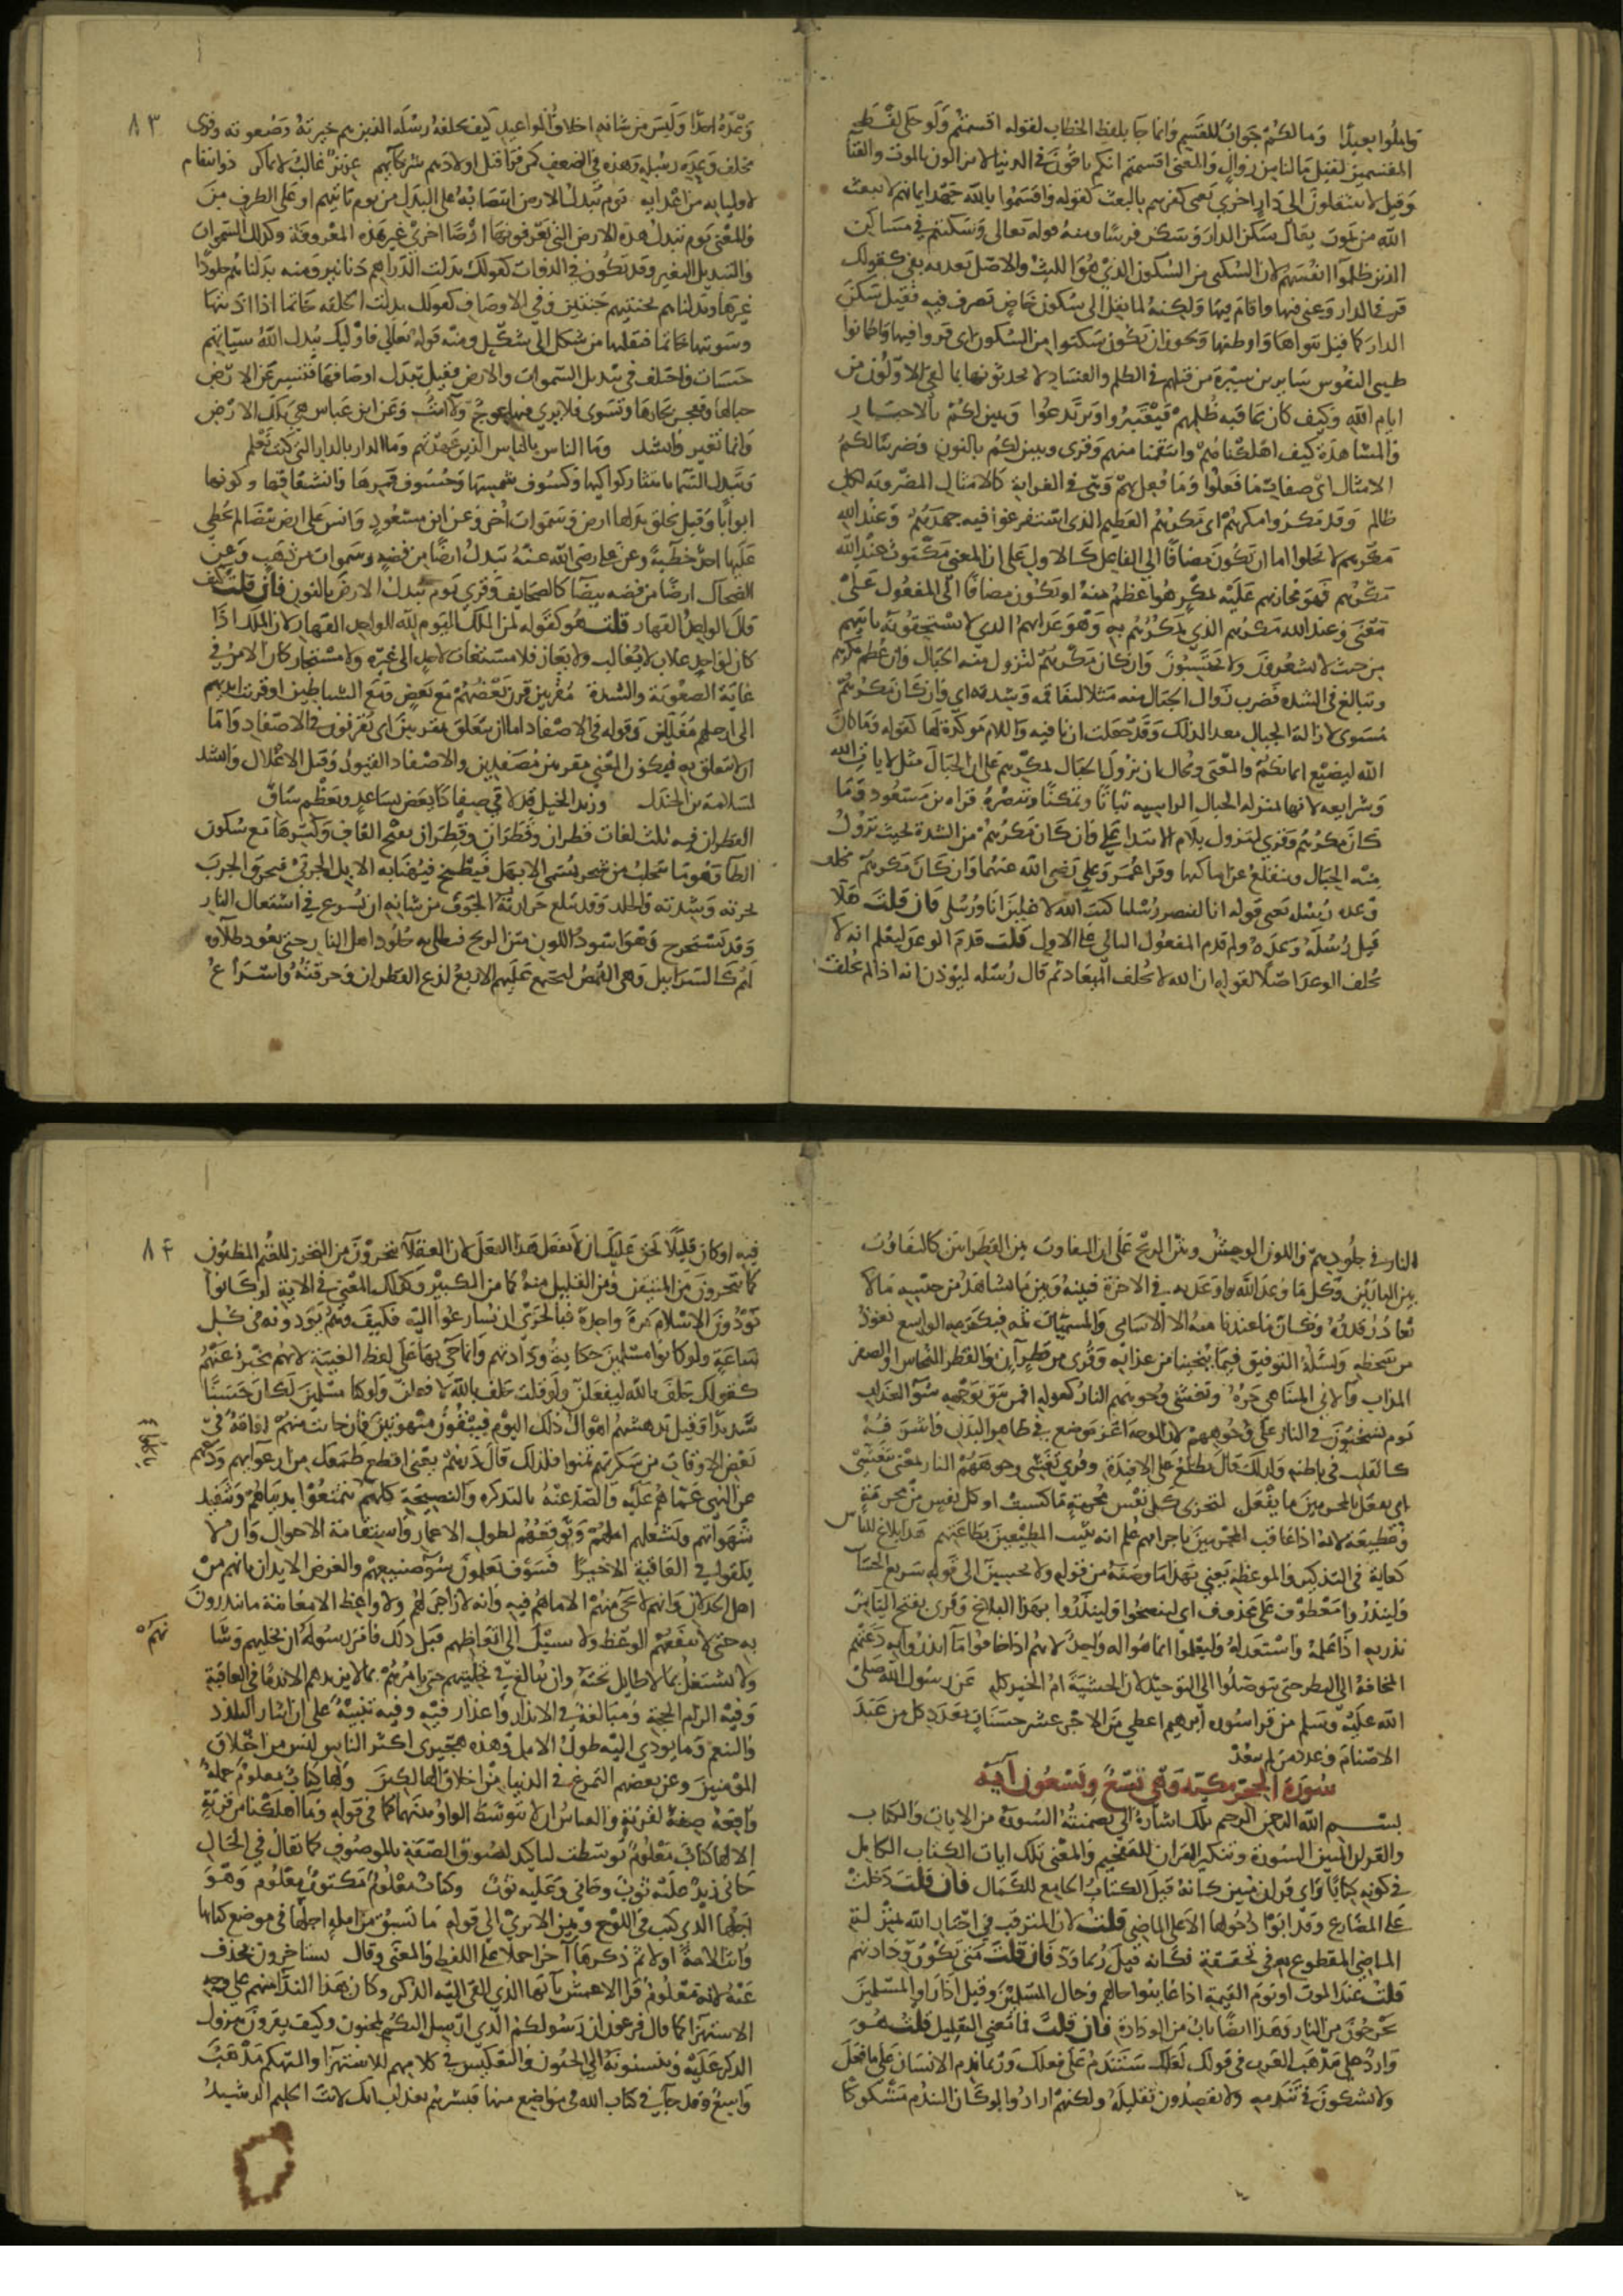 واملوا بعيدا وما لكم جواب للقسم وانما جا بلفظ الخطاب لقوله اقسمتم ولو حكى لفظ
المقسمين لقيل ما لنا من زوال والمعنى اقسمتم انكم باقون في الدنيا لا تزالون بالموت والفنا
وقيل لا تنتقلون الى دار اخرى يعني كفرهم بالبعث كقوله واقسموا بالله جهد ايمانهم لا يبعث
الله من يموت يقال سكن الدار وسكن فيها ومنه قوله تعالى وسكنتم في مساكن
الذين ظلموا انفسهم لان السكنى من السكون الذي هو اللبث والاصل تعديه بفي كقولك
قر في الدار وغني فيها واقام فيها ولكنه لما نقل الى سكون خاص تصرف فيه فقيل سكن
الدار كما قيل تبواها واوطنها ويجوز ان يكون سكنوا من السكون اى قروا فيها واطمانوا
طيبي النفوس سايرين سيرة من قبلهم في الظلم والفساد لا يحدثونها بما لقي الاولون من
ايام الله وكيف كان عاقبة ظلمهم فيعتبروا ويرتدعوا وتبين لكم بالاخبار
والمشاهدة كيف اهلكناهم وانتقمنا منهم وقرى ونبين لكم بالنون وضربنا لكم
الامثال اى صفات ما فعلوا وما فعل بهم وهي في الغرابة كالامثال المضروبة لكل
ظالم وقد مكروا مكرهم اى مكرهم العظيم الذي استفرغوا فيه جهدهم وعند الله
مكرهم لا يخلوا اما ان يكون مضافا الى الفاعل كالاول على ان المعنى مكتوب عند الله
مكرهم فهو مجازيهم عليه بمكر هو اعظم منه او يكون مضافا الى المفعول على
معنى وعند الله مكرهم الذي يمكرهم به وهو عذابهم الذي لا يستحقونه ياتيهم
من حيث لا يشعرون ولا يحتسبون وان كان مكرهم لتزول منه الجبال وان عظم مكرهم
وتبالغ في الشدة فضرب زوال الجبال منه مثلا لتفاقمه وشدته اي وان كان مكرهم
مسوى لازالة الجبال معدا لذلك وقد جعلت ان نافية واللام موكدة لها كقوله وما كان
الله ليضيع ايمانكم والمعنى ومحال ان تزول الجبال بمكرهم على ان الجبال مثل لايات الله
وشرايعه لانها بمنزلة الجبال الراسية ثباتا وتمكنا وتنصره قراه بن مسعود وما
كان مكرهم وقرى لتزول بلام الابتدا على وان كان مكرهم من الشدة بحيث تزول
منه الجبال وتنقلع عن اماكنها وقرا عمر وعلي رضى الله عنهما وان كاد مكرهم مخلف
وعده رسله يعني قوله انا لننصر رسلنا كتب الله لاغلبن انا ورسلي فان قلت هلا
قيل رسله وعده ولم قدم المفعول الثاني على الاول قلت قدم الوعد ليعلم انه لا
يخلف الوعد اصلا لقوله ان الله لا يخلف الميعاد ثم قال رسله ليوذن انه اذا لم يخلف
٨٣
وعده احدا وليس من شانه اخلاف المواعيد كيف يخلفه رسله الذين هم خيرته وصفوته وقرى
مخلف وعده رسله وهذه في الضعف كمن قرا قتل اولادهم شركايهم عزيز غالب لا يماكر ذو انتقام
لاوليايه من اعدايه يوم تبدل الارض انتصابه على البدل من يوم ياتيهم او على الظرف من
والمعنى يوم تبدل هذه الارض التي تعرفونها ارضا اخرى غير هذه المعروفة وكذلك السموات
والتبديل التغيير وقد يكون في الذوات كقولك بدلت الدراهم دنانير ومنه بدلناهم جلودا
غيرها وبدلناهم بجنتيهم جنتين وفي الاوصاف كقولك بدلت الحلقة خاتما اذا اذبتها
وسويتها خاتما فنقلتها من شكل الى شكل ومنه قوله تعالى فاوليك يبدل الله سياتهم
حسنات واختلف في تبديل السموات والارض فقيل تبدل اوصافها فتسير عن الارض
جبالها وتفجر بحارها وتسوى فلا يرى فيها عوج ولا امت وعن ابن عباس هي تلك الارض
وانما تغير وانشد وما الناس بالناس الذين عهدتهم وما الدار بالدار التي كنت تعلم
وتبدل السما بانتثار كواكبها وكسوف شمسها وخسوف قمرها وانشقاقها وكونها
ابوابا وقيل يخلق بدلها ارض وسموات اخر وعن ابن مسعود وانس على ارض بيضا لم يخطي
عليها احد خطية وعن علي رضى الله عنه تبدل ارضا من فضة وسموات من ذهب وعن
الضحاك ارضا من فضة بيضا كالصحايف وقرى يوم نبدل الارض بالنون فان قلت كيف
قال الواحد القهار قلت هو كقوله لمن الملك اليوم لله الواحد القهار لان الملك اذا
كان لواحد غلاب لا يغالب ولا يعاز فلا مستغاث لاحد الى غيره ولا مستجار كان الامر في
غاية الصعوبة والشدة مقرنين قرن بعضهم مع بعض ومع الشياطين او قرنت ايديهم
الى ارجلهم مغللين وقوله في الاصفاد اما ان يتعلق بمقرنين اى يقرنون في الاصفاد واما
ان لا يتعلق به فيكون المعنى مقرنين مصفدين والاصفاد القيود وقيل الاغلال وانشد
لسلامة بن جندل وزيد الخيل قد لاقى صفادا يعض بساعد وبعظم ساق
القطران فيه ثلث لغات قطران وقطران وقطران بفتح القاف وكسرها مع سكون
الطا وهو ما يتحلب من شجر يسمى الابهل فيطبخ فيهنا به الابل الجربى فيحرق الجرب
بحرته وشدته والجلد وقد تبلغ حرارته الجوف من شانه ان يسرع في اشتعال النار
وقد يستسرج وهو اسود اللون منتن الريح فيطلى به جلود اهل النار حتى يعود طلاوه
لهم كالسرابيل وهي القمص ليجتمع عليهم الاربع لذع القطران وحرقته واسراع
النار في جلودهم واللون الوحش ونتن الريح على ان التفاوت بين القطرانين كالتفاوت
بين النارين وكل ما وعد الله او اوعد به في الاخرة فبينه وبين ما نشاهد من جنسه ما لا
يقادر قدره وكان ما عندنا منه الا الاسامي والمسميات ثمه فبكرمه الواسع نعوذ
من سخطه ونساله التوفيق فيما ينجينا من عذابه وقرى من قطر آن والقطر النحاس او الصفر
المذاب والاني المتناهي حره وتغشى وجوههم النار كقوله افمن يتقي بوجهه سو العذاب
يوم يسحبون في النار على وجوههم لان الوجه اعز موضع في ظاهر البدن واشرفه
كالقلب في باطنه ولذلك قال تطلع على الافيدة وقرى تغشى وجوههم النار بمعنى تتغشى
اى يفعل بالمجرمين ما يفعل لتجزى كل نفس مجرمة ما كسبت او كل نفس من مجرمة
ومطيعة لانه اذا عاقب المجرمين باجرامهم علم انه يثيب المطيعين بطاعتهم هذا بلاغ للناس
كفاية في التذكير والموعظة يعني بهذا ما وصفه من قوله ولا تحسبن الى قوله سريع الحساب
ولينذروا معطوف على محذوف اى لينصحوا ولينذروا بهذا البلاغ وقرى بفتح اليا من
نذر به اذا علمه واستعد له وليعلموا انما هو اله واحد لانهم اذا خافوا ما انذروا به دعتهم
المخافة الى النظر حتى يتوصلوا الى التوحيد لان الخشية ام الخير كله عن رسول الله صلى
الله عليه وسلم من قرا سورة ابرهيم اعطي من الاجر عشر حسنات بعدد كل من عبد
الاصنام وعدد من لم يعبد
سورة الحجر مكية وهي تسع وتسعون آية
بسم الله الرحمن الرحيم تلك اشارة الى ما تضمنته السورة من الايات والكتاب
والقران المبين السورة وتنكير القران للتفخيم والمعنى تلك ايات الكتاب الكامل
في كونه كتابا واى قران مبين كانه قيل الكتاب الجامع للكمال فان قلت دخلت
على المضارع وقد ابوا دخولها الا على الماضي قلت لان المترقب في اخبار الله بمنزلة
الماضي المقطوع به في تحققه فكانه قيل ربما ود فان قلت متى يكون ودادتهم
قلت عند الموت او يوم القيمة اذا عاينوا حالهم وحال المسلمين وقيل اذا راوا المسلمين
يخرجون من النار وهذا ايضا باب من الودادة فان قلت فما معنى التقليل قلت هو
وارد على مذهب العرب في قولك لعلك ستندم على فعلك وربما ندم الانسان على ما فعل
ولا يشكون في تندمه ولا يقصدون تقليله ولكنهم ارادوا لو كان الندم مشكوكا
٨٤
فيه او كان قليلا لحق عليك ان لا تفعل هذا الفعل لان العقلا يتحرزون من التعرض للغم المظنون
كما يتحرزون من المتيقن ومن القليل منه كما من الكثير وكذلك المعنى في الاية لو كانوا
يودون الاسلام مرة واحدة فبالحرى ان يسارعوا اليه فكيف وهم يودونه في كل
ساعة ولو كانوا مسلمين حكاية ودادتهم وانما جي بها على لفظ الغيبة لانهم مخبر عنهم
كقولك حلف بالله ليفعلن ولو قلت حلف بالله لافعلن ولو كنا مسلمين لكان حسنا
سديدا وقيل تدهشهم اهوال ذلك اليوم فيبقون مبهوتين فان حانت منهم افاقة في
بعض الاوقات من سكرتهم تمنوا فلذلك قلل ذرهم يعني اقطع طمعك من ارعوايهم ودعهم
عن النهي عما هم عليه والصد عنه بالتذكرة والنصيحة كلهم يتمتعوا بدنياهم وتنفيذ
شهواتهم ويشغلهم املهم وتوقعهم لطول الاعمار واستقامة الاحوال وان لا
يلقوا في العاقبة الا خيرا فسوف يعلمون سو صنيعهم والغرض الايذان بانهم من
اهل الخذلان وانهم لا يجي منهم الا ما هم فيه وانه لا زاجر لهم ولا واعظ الا معاينة ما ينذرون
به حتى لا ينفعهم الوعظ ولا سبيل الى اتعاظهم قبل ذلك فامر رسوله ان يخليهم وشا نهم
ولا يشتغل بما لا طايل تحته وان يبالغ في تخليتهم حتى يامرهم بما لا يزيدهم الا ندما في العاقبة
وفيه الزام الحجة ومبالغة في الانذار واعذار فيه وفيه تنبيه على ان ايثار التلذذ
والتنعم وما يودي اليه طول الامل وهذه هجيرى اكثر الناس ليس من اخلاق
المومنين وعن بعضهم التمرغ في الدنيا من اخلاق الهالكين ولها كتاب معلوم جملة
واقعة صفة لقرية والقياس ان لا يتوسط الواو بينهما كما في قوله وما اهلكنا من قرية
الا لها كتاب معلوم توسطت لتاكيد لصوق الصفة بالموصوف كما يقال في الحال
جاني زيد عليه ثوب وجاني وعليه ثوب وكتاب معلوم مكتوب معلوم وهو
اجلها الذي كتب في اللوح وبين الا ترى الى قوله ما تسبق من امة اجلها في موضع كتابها
وانث الامة اولا ثم ذكرها آخرا حملا على اللفظ والمعنى وقال يستاخرون بحذف
عنه لانه معلوم قرا الاعمش يا ايها الذي القي اليه الذكر وكان هذا الندا منهم على وجه
الاستهزا كما قال فرعون ان رسولكم الذي ارسل اليكم لمجنون وكيف يقرون بنزول
الذكر عليه وينسبونه الى الجنون والتعكيس في كلامهم للاستهزا والتهكم مذهب
واسع وقد جا في كتاب الله في مواضع منها فبشرهم بعذاب اليم انك لانت الحليم الرشيد